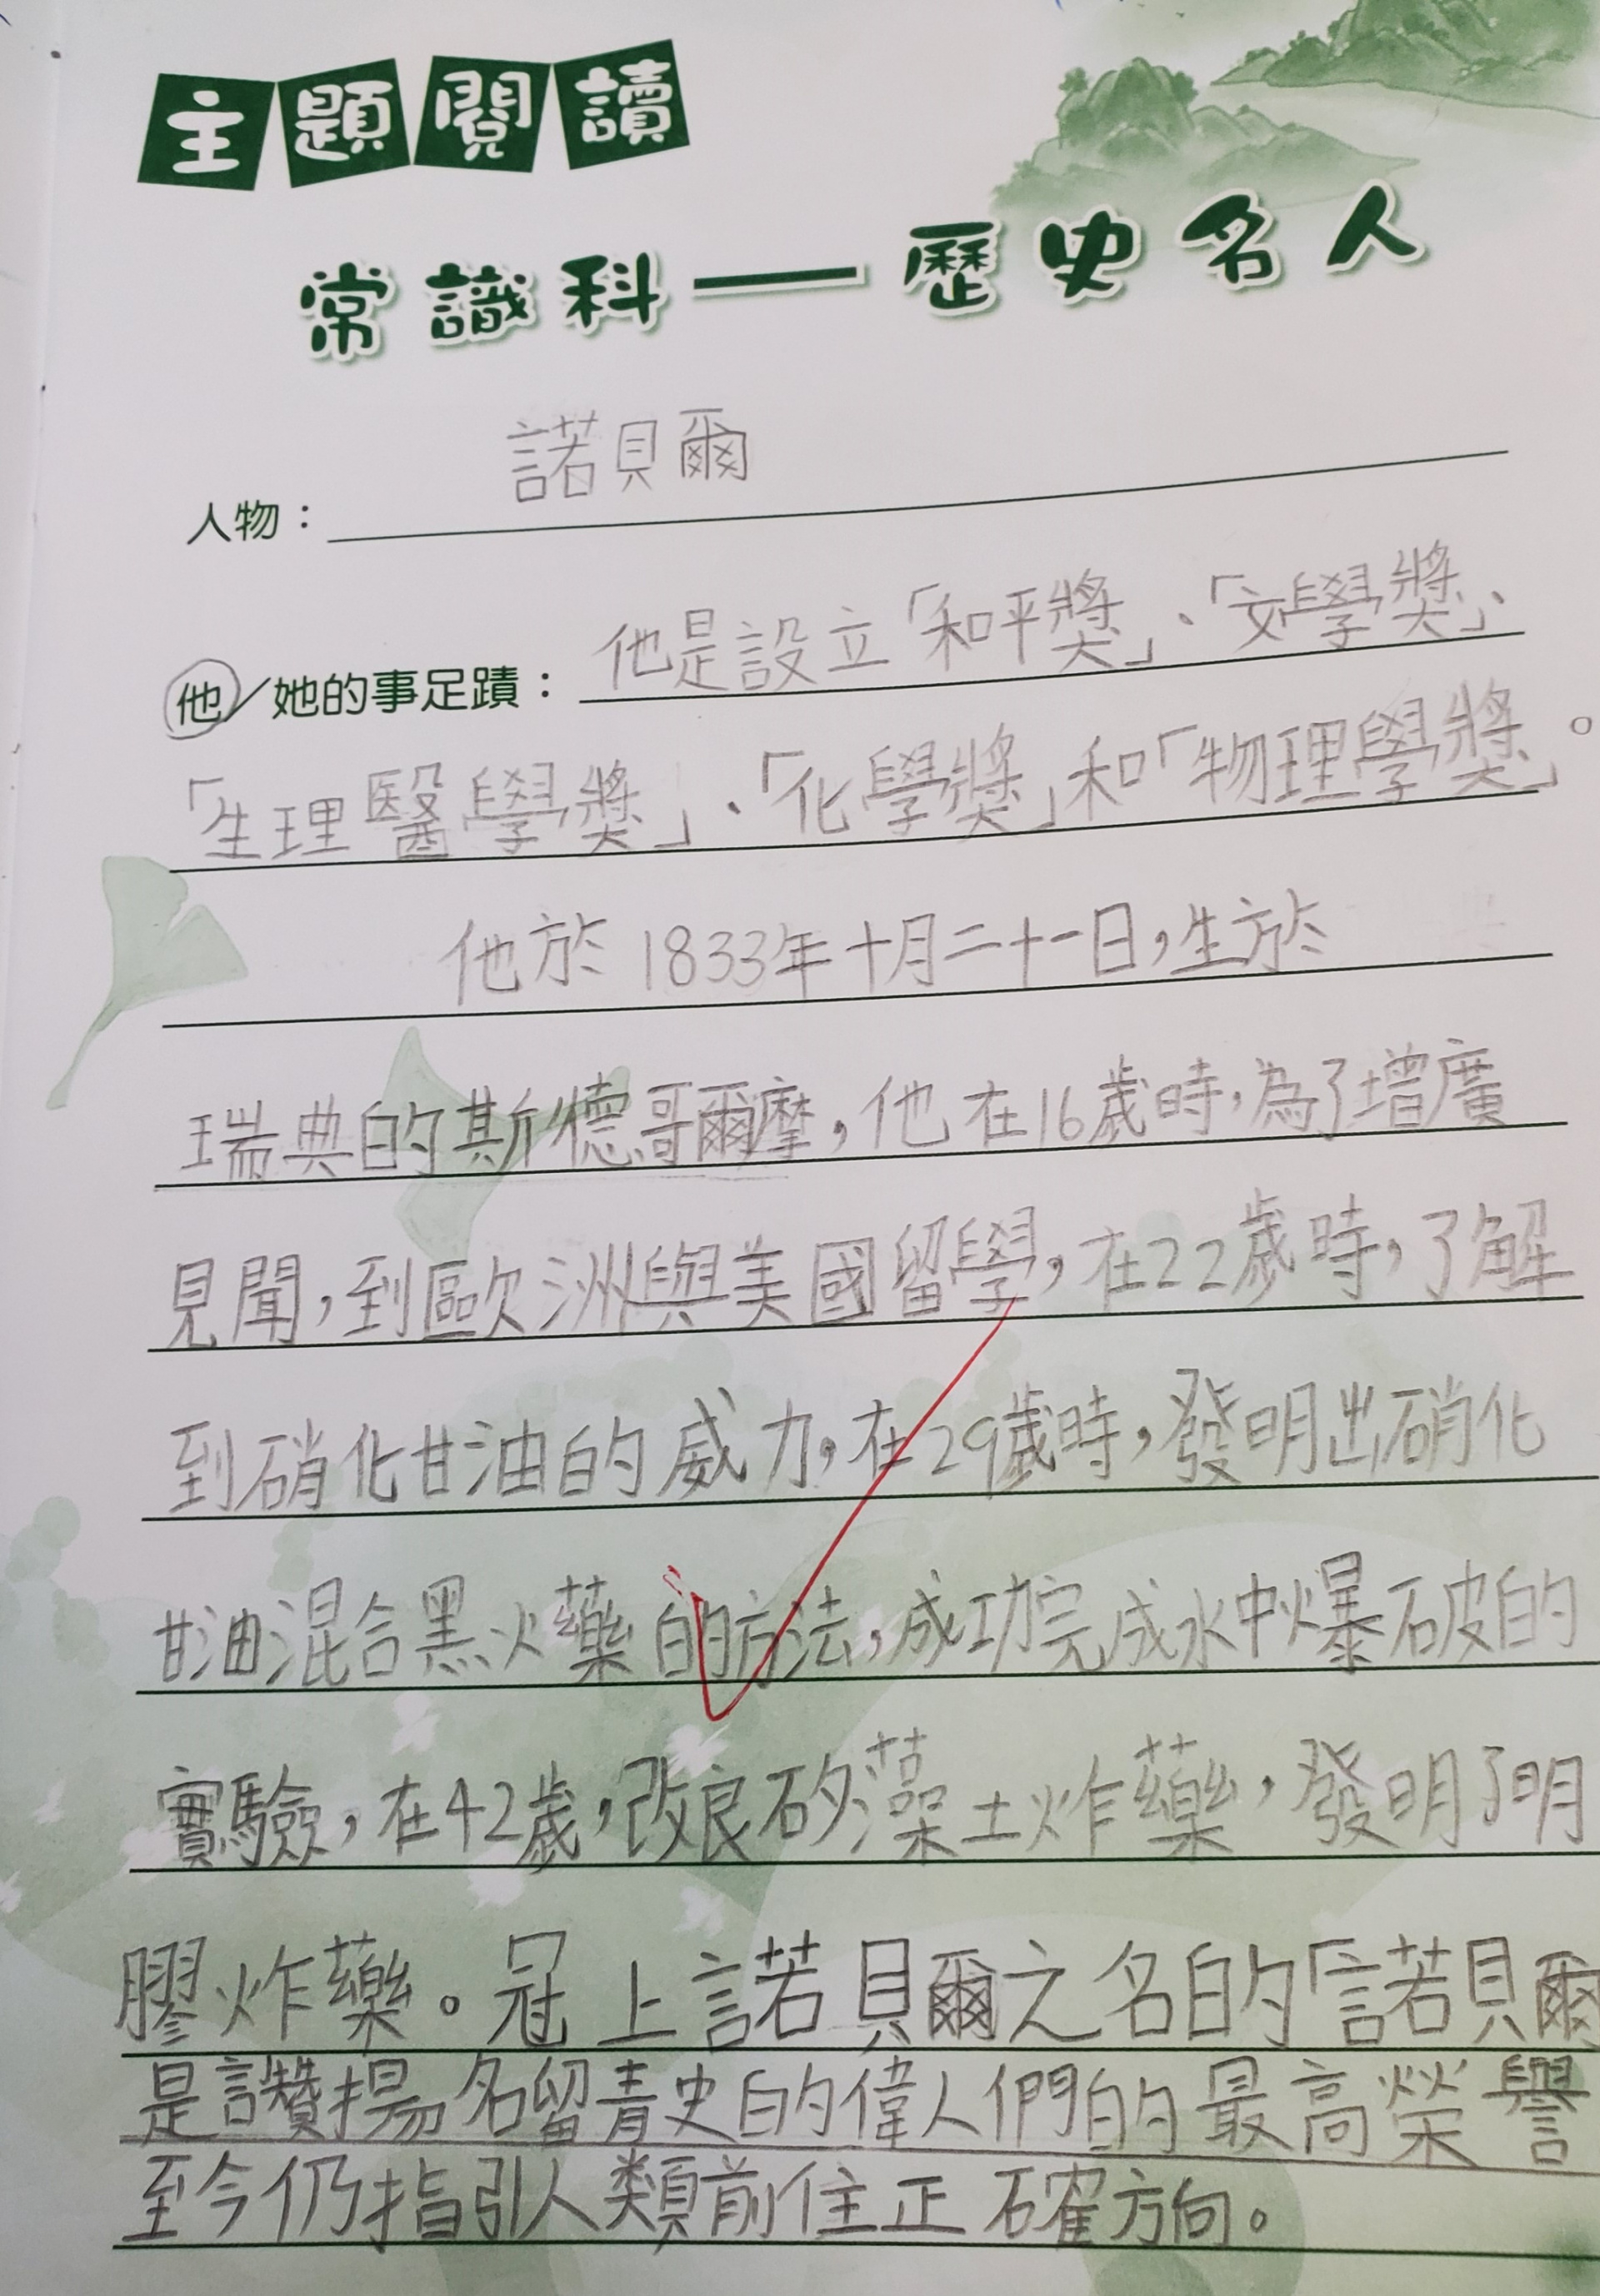 主題閱讀
常識科——歷史名人
諾貝爾
人物：
他是設立「和平獎」、「文學獎」、
他／她的事足蹟：
「生理醫學獎」、「化學獎」和「物理學獎」。
他於1833年十月二十一日，生於
瑞典的斯德哥爾摩，他在16歲時，為了增廣
見聞，到歐洲與美國留學，在22歲時，了解
到硝化甘油的威力，在29歲時，發明出硝化
甘油混合黑火藥的方法，成功完成水中爆破的
實驗，在42歲，改良矽藻土炸藥，發明了明
膠炸藥。冠上諾貝爾之名的「諾貝爾
是讚揚名留青史的偉人們的最高榮譽
至今仍指引人類前往正確方向。